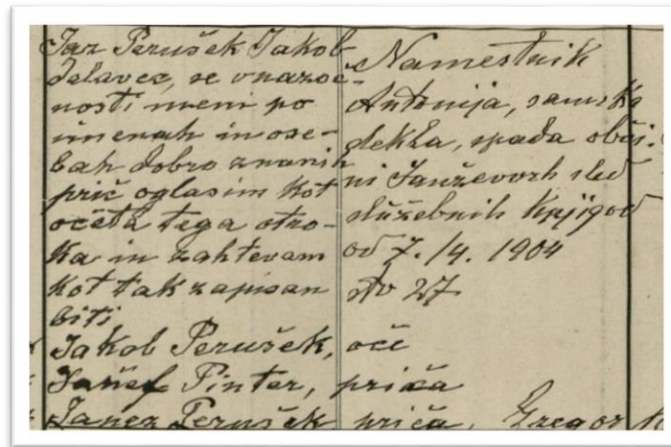 Jaz Perušek Jakob
delavec, se v nazoč-
nosti meni po
imenah in ose-
bah dobro znanih
prič oglasim kot
očeta tega otro-
ka in zahtevam
kot tak zapisan
biti
Jakob Perušek, oče
Pinter, priča
Janez Perušek priča, Gregor
Namestnik
Antonija, samska
dekla, spada obči-
ni Janževorh sled
službenih knjig od
od 7./4. 1904
do 27